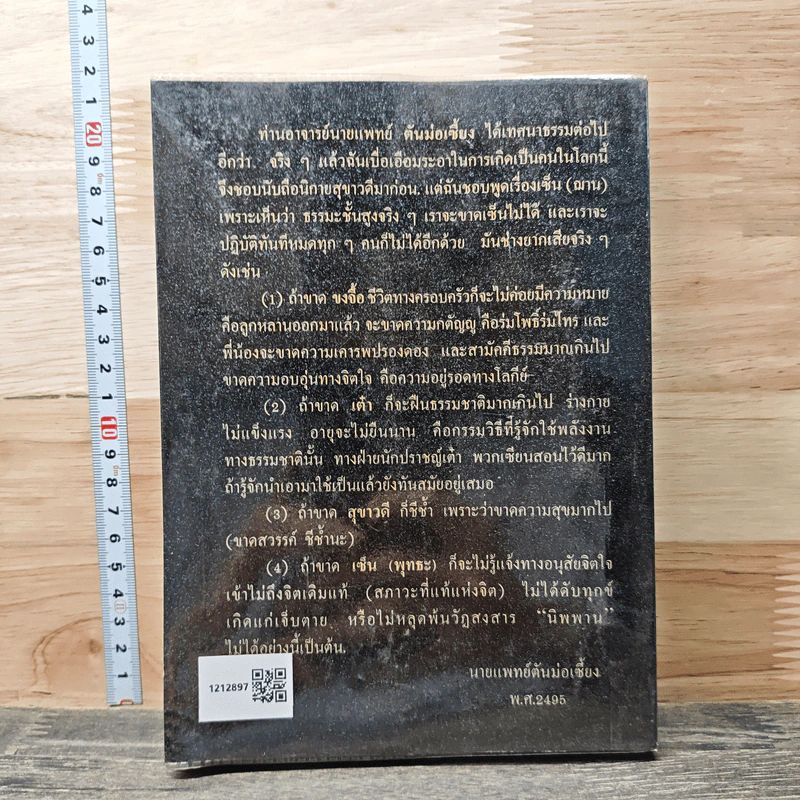 ท่านอาจารย์นายแพทย์ ตันม่อเซี้ยง ได้เทศนาธรรมต่อไป
อีกว่า จริง ๆ แล้วฉันเบื่อเอือมระอาในการเกิดเป็นคนในโลกนี้
จึงชอบนับถือนิกายสุขาวดีมาก่อน. แต่ฉันชอบพูดเรื่องเซ็น (ฌาน)
เพราะเห็นว่า ธรรมะชั้นสูงจริง ๆ เราจะขาดเซ็นไม่ได้ และเราจะ
ปฏิบัติทันทีหมดทุก ๆ คนก็ไม่ได้อีกด้วย มันช่างยากเสียจริง ๆ
ดังเช่น
(1) ถ้าขาด ขงจื้อ ชีวิตทางครอบครัวก็จะไม่ค่อยมีความหมาย
คือลูกหลานออกมาแล้ว จะขาดความกตัญญู คือร่มโพธิ์ร่มไทร และ
พี่น้องจะขาดความเคารพปรองดอง และสามัคคีธรรมมากเกินไป
ขาดความอบอุ่นทางจิตใจ คือความอยู่รอดทางโลกีย์
(2) ถ้าขาด เต๋า ก็จะฝืนธรรมชาติมากเกินไป ร่างกาย
ไม่แข็งแรง อายุจะไม่ยืนนาน คือกรรมวิธีที่รู้จักใช้พลังงาน
ทางธรรมชาตินั้น ทางฝ่ายนักปราชญ์เต๋า พวกเซียนสอนไว้ดีมาก
ถ้ารู้จักนำเอามาใช้เป็นแล้วยังทันสมัยอยู่เสมอ
(3) ถ้าขาด สุขาวดี ก็ชีช้ำ เพราะว่าขาดความสุขมากไป
(ขาดสวรรค์ ชีช้ำนะ)
(4) ถ้าขาด เซ็น (พุทธะ) ก็จะไม่รู้แจ้งทางอนุสัยจิตใจ
เข้าไม่ถึงจิตเดิมแท้ (สภาวะที่แท้แห่งจิต) ไม่ได้ดับทุกข์
เกิดแก่เจ็บตาย หรือไม่หลุดพ้นวัฏสงสาร "นิพพาน"
ไม่ได้อย่างนี้เป็นต้น.
นายแพทย์ตันม่อเซี้ยง
พ.ศ.2495
1212897
4
3
2
1
20
9
8
7
6
5
4
3
2
1
10
9
8
7
6
5
4
3
2
1